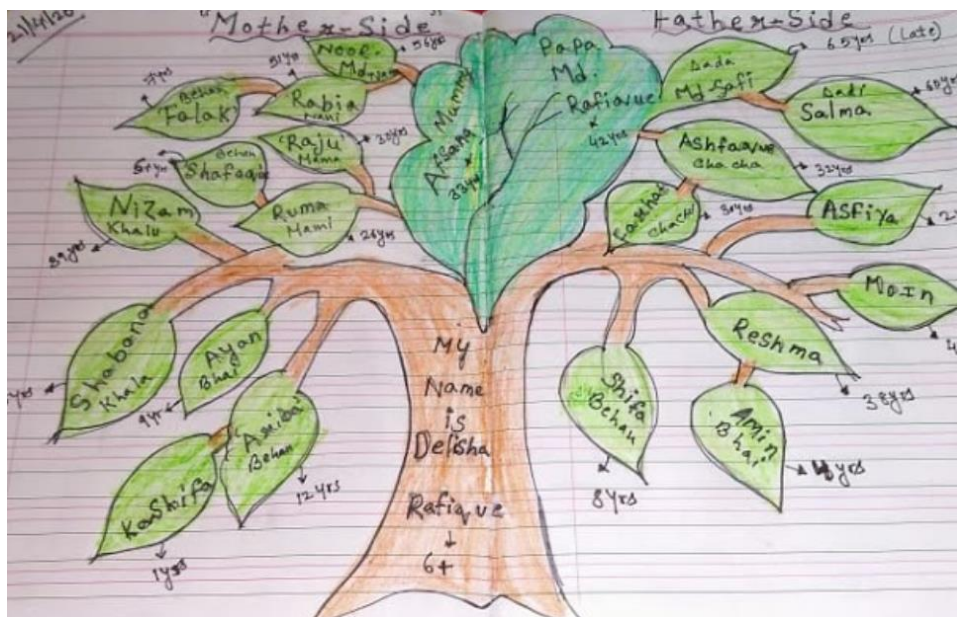 21/4/20
"Mother-Side"
Father-Side
Noor
Md
56yrs
51yrs
Rabia
Nani
7yrs
Behan
Falak
'Raju'
Mama
30yrs
Behan
Shafaque
Ruma
Mami
26yrs
Nizam
Khalu
39yrs
Shabana
Khala
yrs
Ayan
Bhai
9yr
'Asiba'
Behan
12yrs
Kashifa
1yrs
Mummy
Afsana
33yrs
Papa
Md.
Rafiavue
42yrs
Dada
Md-Safi
65yrs (Late)
Dadi
Salma
60yrs
Ashfaavue
Chacha
32yrs
Farhat
chachi
30yrs
Asfiya
2
Moin
4
Reshma
38yrs
Amin
Bhai
Shifa
Behan
8yrs
My
Name
is
Delisha
Rafique
6+